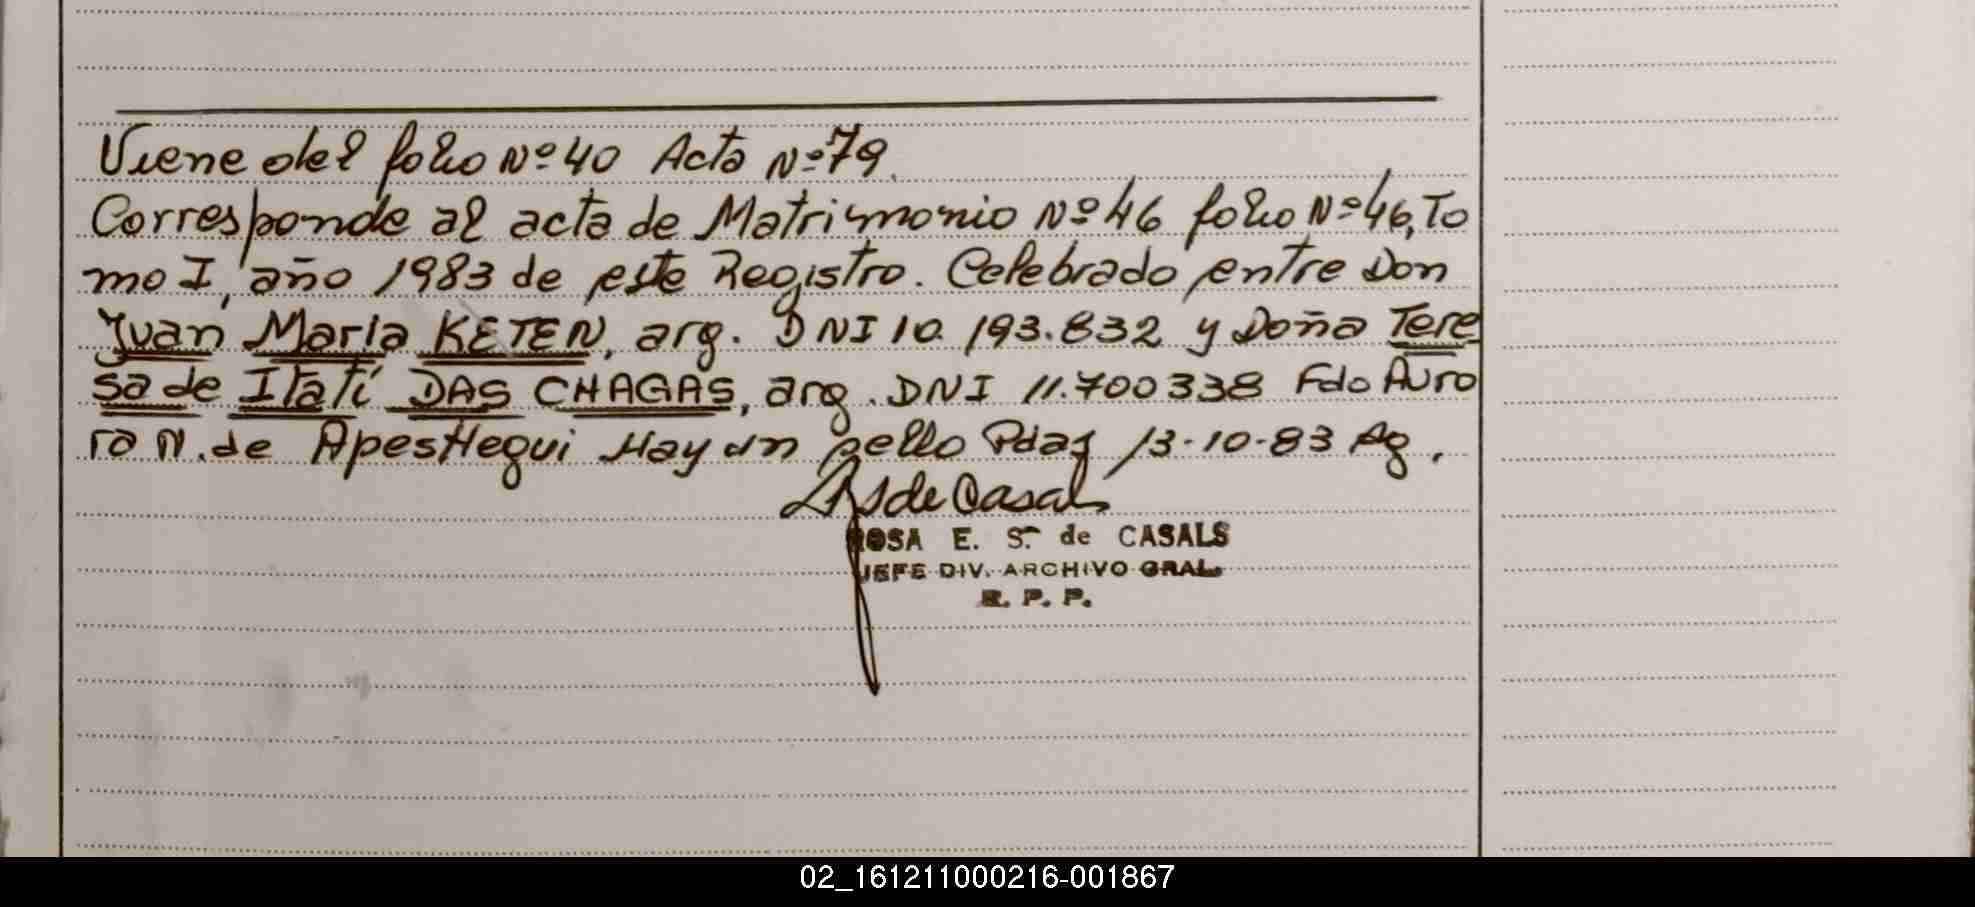 Viene del folio Nº 40 Acta Nº 79.
Corresponde al acta de Matrimonio Nº 46 folio Nº 46, To
mo I, año 1983 de este Registro. Celebrado entre Don
Juan Maria KETEN, arg. DNI 10.193.832 y Doña Tere
sa de Itatí DAS CHAGAS, arg. DNI 11.700338 Fdo Auro
ra N. de Apesttegui Hay un sello Pdas 13-10-83 Ag.
de Casals
ROSA E. S. de CASALS
JEFE DIV. ARCHIVO GRAL.
R. P. P.
02_161211000216-001867